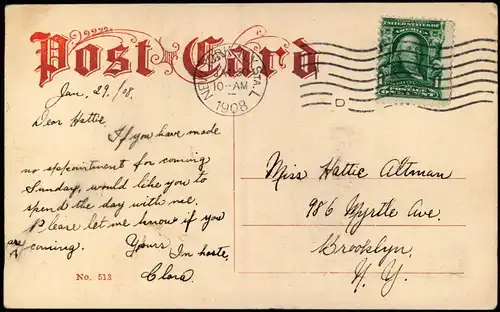 Post Card
Jan. 29./08.
Dear Hattie
If you have made
no appointment for coming
Sunday, would like you to
spend the day with me.
Please let me know if you
are coming. Yours
In haste,
Clara.
No. 513
NEW YORK, N.Y. STA. L
10-AM
1908
D
UNITED STATES OF
AMERICA
POSTAGE
Miss Hattie Altman
986 Myrtle Ave.
Brooklyn.
N. Y.